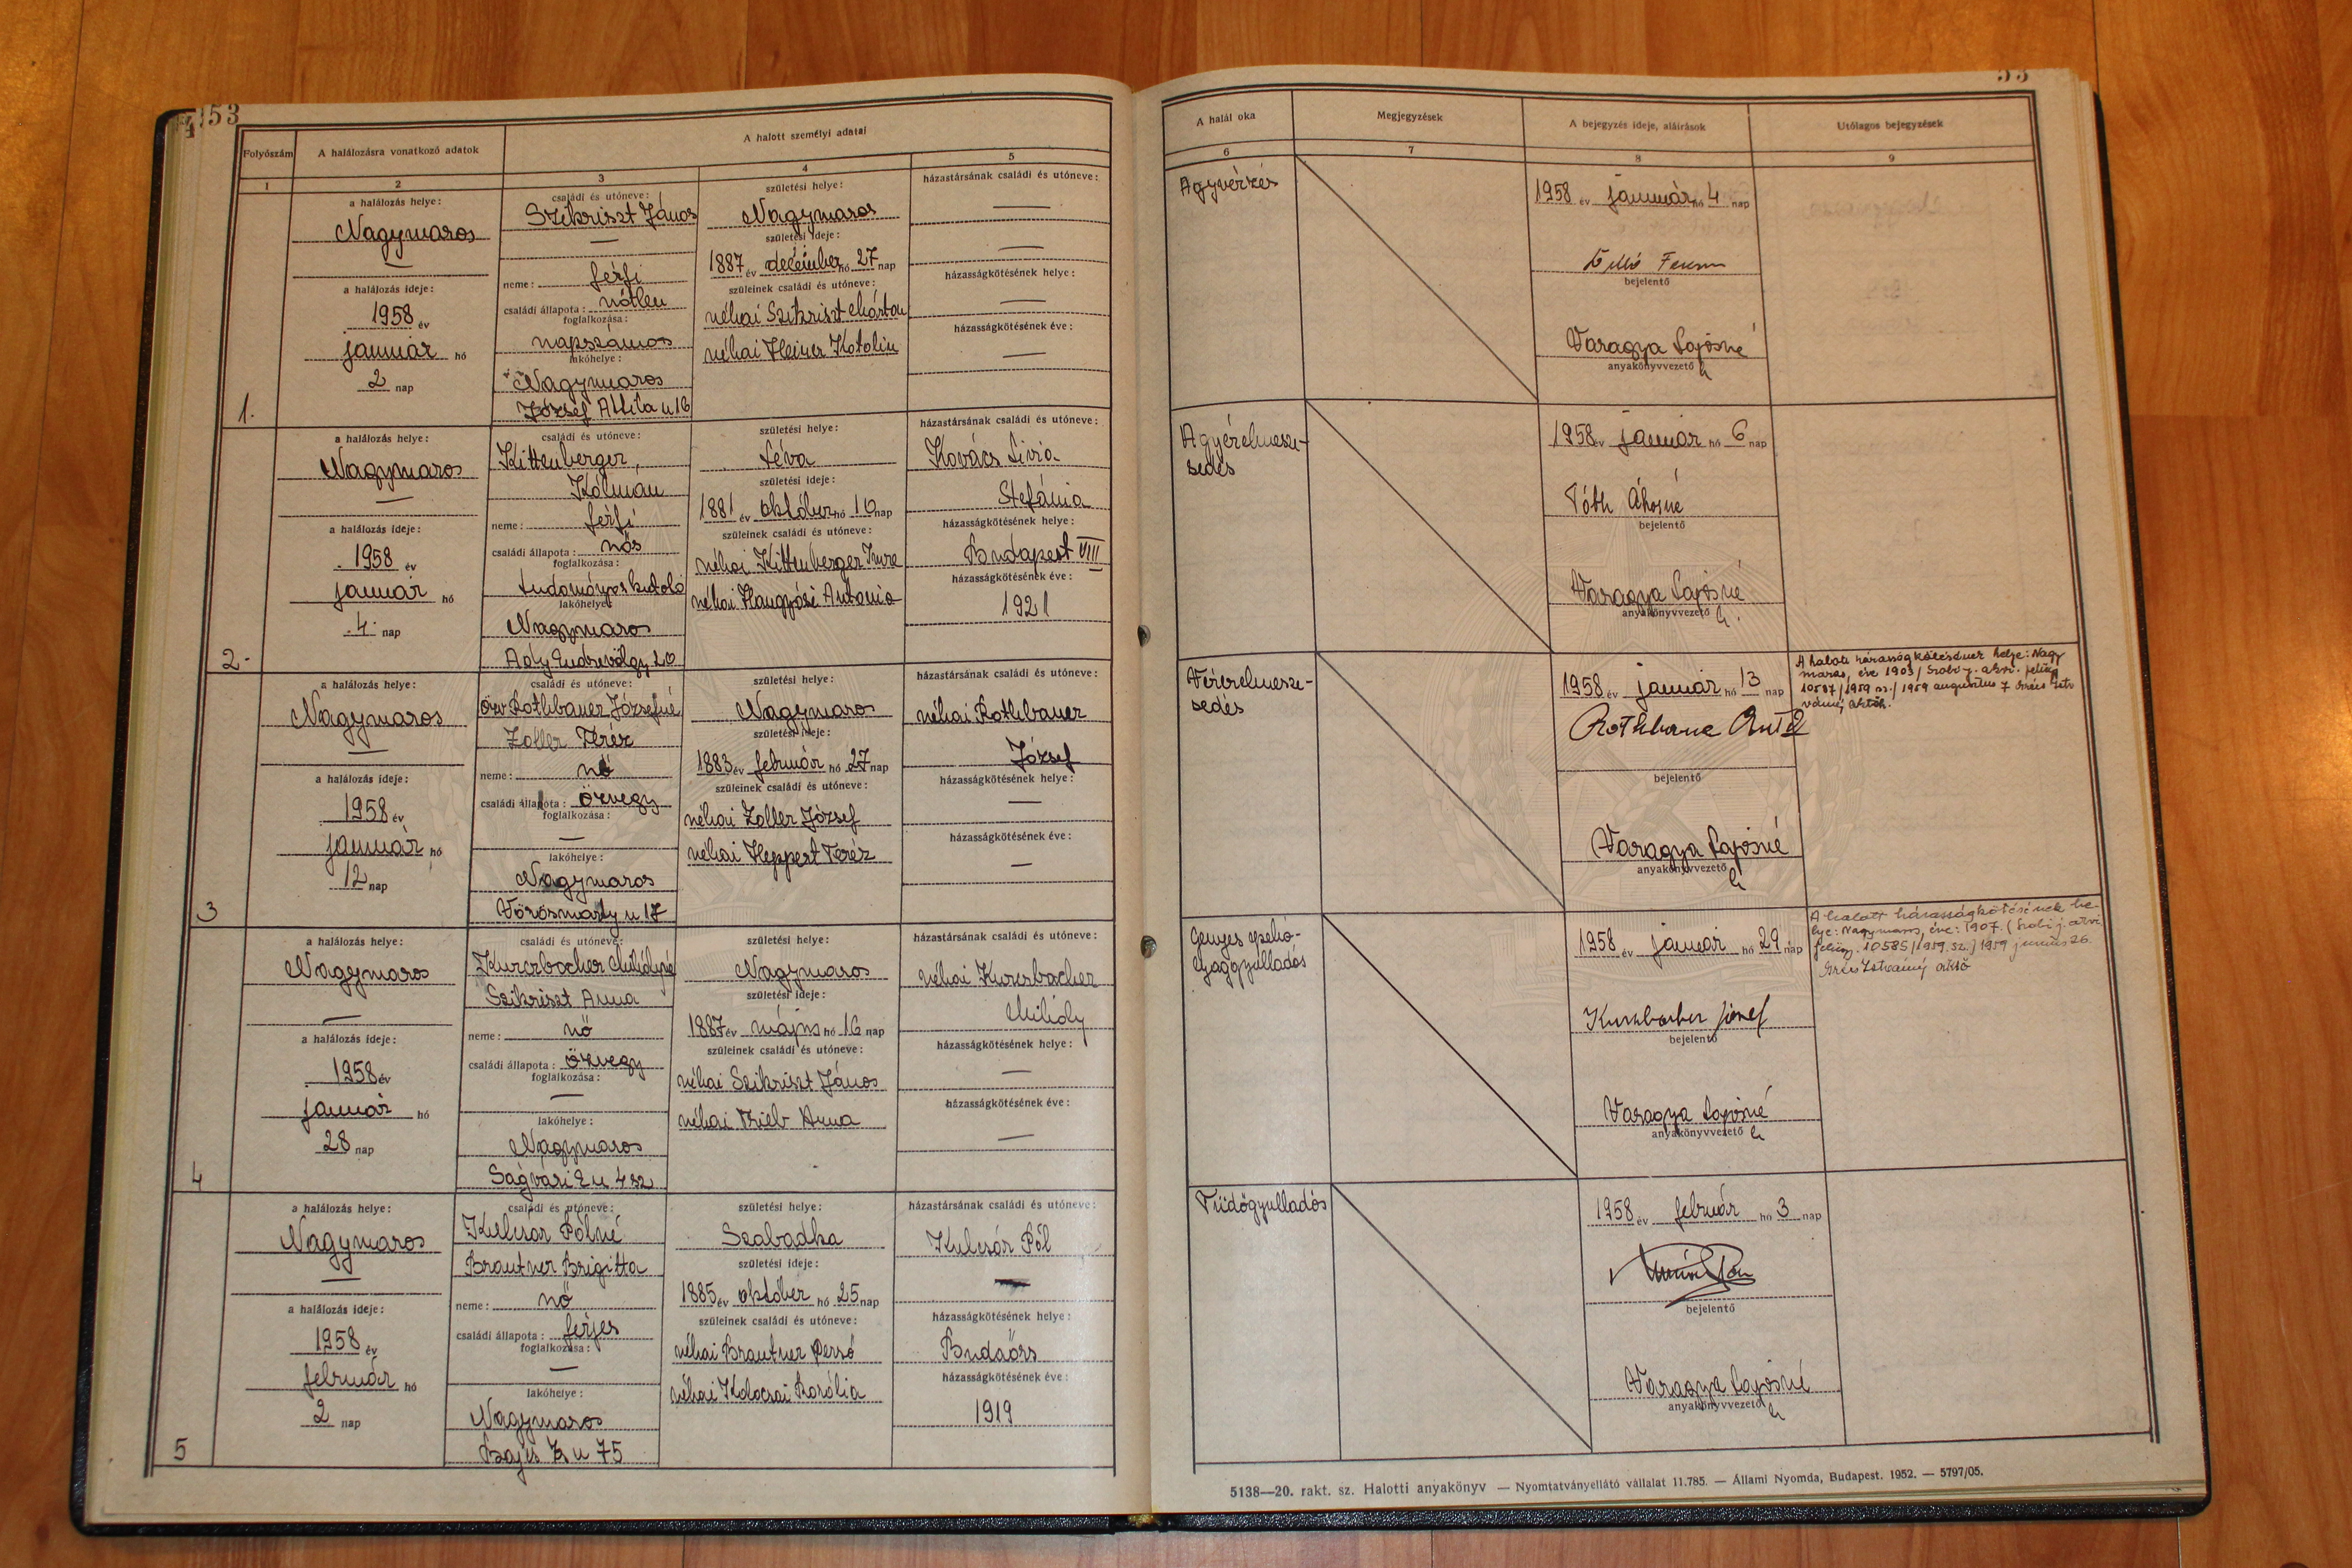 53
Folyószám
A halálozásra vonatkozó adatok
A halott személyi adatai
1
2
3
4
5
a halálozás helye:
Nagymaros
—
a halálozás ideje:
1958 év
január hó
2 nap
1.
családi és utóneve:
Szikriszt János
—
neme: férfi
családi állapota: nőtlen
foglalkozása:
napszámos
lakóhelye:
Nagymaros
József Attila u 16
születési helye:
Nagymaros
születési ideje:
1887 év december hó 27 nap
szüleinek családi és utóneve:
néhai Szikriszt Márton
néhai Heiner Katalin
házastársának családi és utóneve:
—
—
házasságkötésének helye:
—
házasságkötésének éve:
—
a halálozás helye:
Nagymaros
—
a halálozás ideje:
1958 év
január hó
4 nap
2.
családi és utóneve:
Kittenberger,
Kálmán
neme: férfi
családi állapota: nős
foglalkozása:
tudományos kutató
lakóhelye:
Nagymaros
Ady Endrevölgy 20
születési helye:
Léva
születési ideje:
1881 év október hó 10 nap
szüleinek családi és utóneve:
néhai Kittenberger Imre
néhai Hangyási Antónia
házastársának családi és utóneve:
Kovács Lívia
Stefánia
házasságkötésének helye:
Budapest VIII
házasságkötésének éve:
1921
a halálozás helye:
Nagymaros
—
a halálozás ideje:
1958 év
január hó
12 nap
3
családi és utóneve:
özv Rothbauer Józsefné
Zoller Teréz
neme: nő
családi állapota: özvegy
foglalkozása:
—
lakóhelye:
Nagymaros
Vörösmarty u 17
születési helye:
Nagymaros
születési ideje:
1883 év február hó 27 nap
szüleinek családi és utóneve:
néhai Zoller József
néhai Heppert Teréz
házastársának családi és utóneve:
néhai Rothbauer
József
házasságkötésének helye:
—
házasságkötésének éve:
—
a halálozás helye:
Nagymaros
—
a halálozás ideje:
1958 év
január hó
28 nap
4
családi és utóneve:
Kurcsbacher Mihályné
Szikriszt Anna
neme: nő
családi állapota: özvegy
foglalkozása:
—
lakóhelye:
Nagymaros
Ságvári E u 4 sz
születési helye:
Nagymaros
születési ideje:
1887 év május hó 16 nap
szüleinek családi és utóneve:
néhai Szikriszt János
néhai Trieb Anna
házastársának családi és utóneve:
néhai Kurcsbacher
Mihály
házasságkötésének helye:
—
házasságkötésének éve:
—
a halálozás helye:
Nagymaros
—
a halálozás ideje:
1958 év
február hó
2 nap
5
családi és utóneve:
Kulcsár Pálné
Brautner Brigitta
neme: nő
családi állapota: férjes
foglalkozása:
—
lakóhelye:
Nagymaros
u 75
születési helye:
Szabadka
születési ideje:
1885 év október hó 25 nap
szüleinek családi és utóneve:
néhai Brautner
néhai Kolocsai Rozália
házastársának családi és utóneve:
Kulcsár Pál
—
házasságkötésének helye:
Budaörs
házasságkötésének éve:
1919
53
A halál oka
Megjegyzések
A bejegyzés ideje, aláírások
Utólagos bejegyzések
6
7
8
9
Agyvérzés
1958 év január hó 4 nap
bejelentő
Varagya Lajosné
anyakönyvvezető h
Agyérelmesze-
sedés
1958 év január hó 6 nap
Tóth
bejelentő
Varagya Lajosné
anyakönyvvezető h.
Vérérelmesze-
sedés
1958 év január hó 13 nap
bejelentő
Varagya Lajosné
anyakönyvvezető h
A halott házasságkötésének helye: Nagy
maros, éve 1903 / Szobi j. akv. felügy.
10587/1959 sz./ 1959 augusztus 7
Gennyes epehó-
lyaggyulladás
1958 év január hó 29 nap
Kurcsbacher József
bejelentő
Varagya Lajosné
anyakönyvvezető h
A halott házasságkötésének he-
lye: Nagymaros, éve: 1907. (Szobi j. akv.
felügy. 10585/1959. sz.) 1959 junius 26.
Tüdőgyulladás
1958 év február hó 3 nap
bejelentő
Varagya Lajosné
anyakönyvvezető h
5138—20. rakt. sz. Halotti anyakönyv — Nyomtatványellátó vállalat 11.785. — Állami Nyomda, Budapest. 1952. — 5797/05.